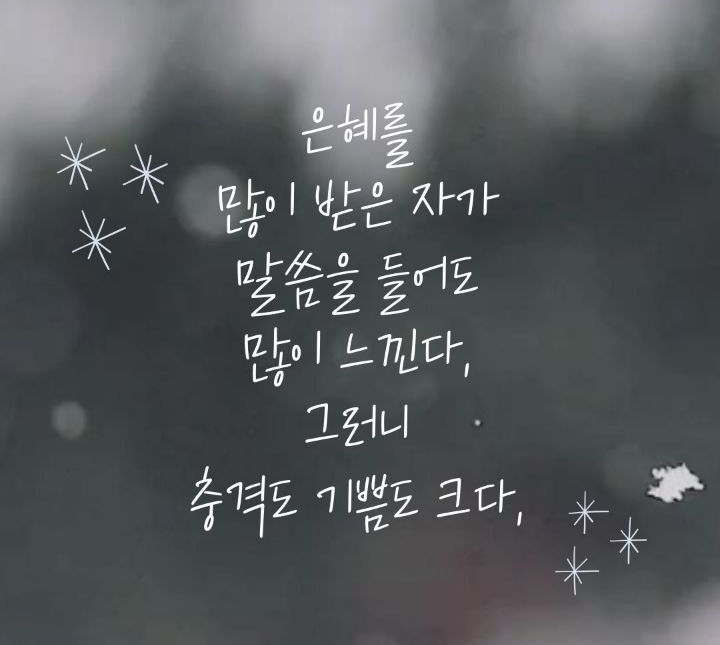 은혜를
많이 받은 자가
말씀을 들어도
많이 느낀다,
그러니
충격도 기쁨도 크다,